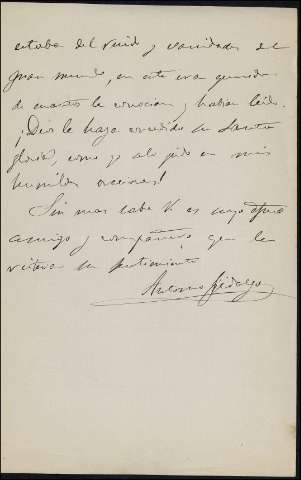 estaba del ruido y vanidades del
gran mundo, en este era querida
de cuantos la conocian y habian leido.
¡Dios le haya concedido su Santa
gloria, como yo alo pido en mis
humildes oraciones!
Sin mas sabe V. es suyo afmo
amigo y compañero que le
reitera su sentimiento
Antonio Hidalgo